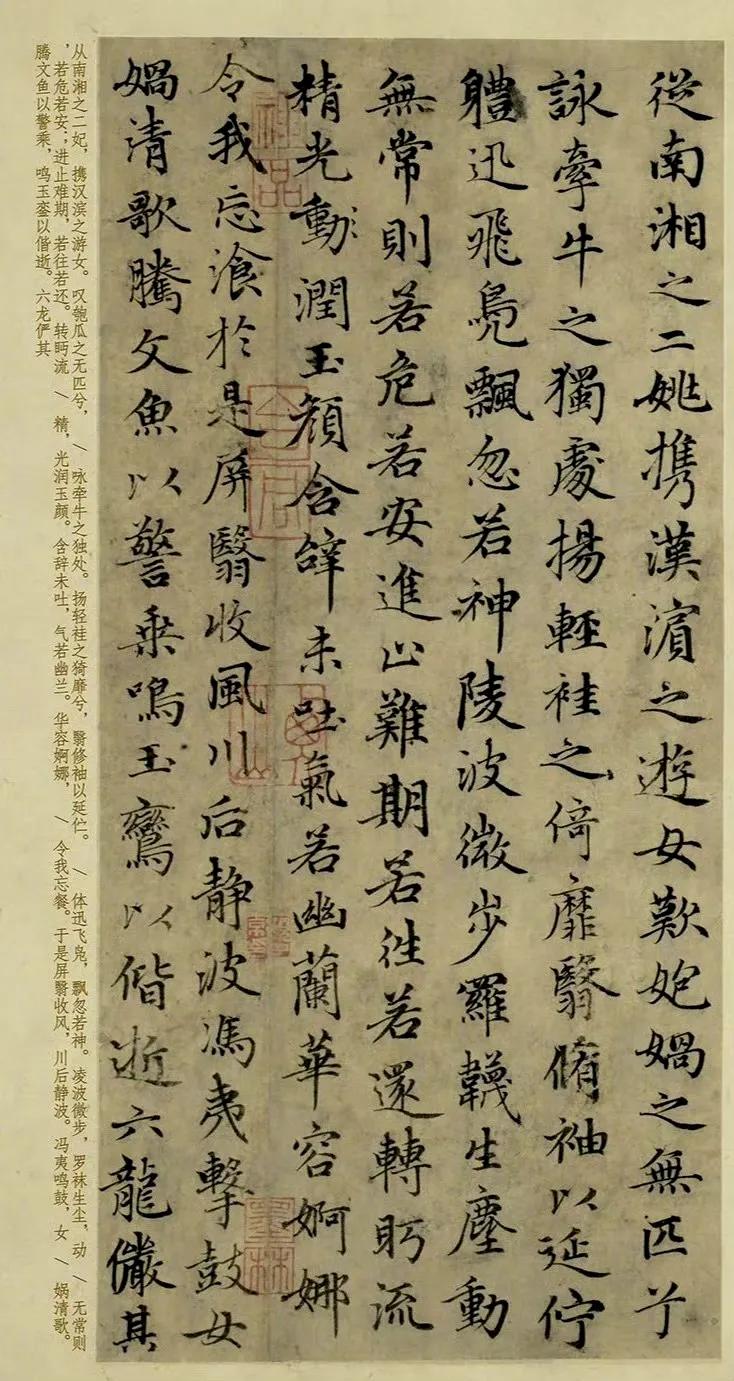 從南湘之二姚携漢濵之遊女歎妑媧之無匹兮
詠牽牛之獨處揚輕袿之倚靡翳脩袖以延佇
體迅飛鳧飄忽若神陵波微步羅韈生塵動
無常則若危若安進止難期若往若還轉眄流
精光動潤玉顏含辝未吐氣若幽蘭華容婀娜
令我忘飡於是屏翳收風川后静波馮夷擊鼓女
媧清歌騰文魚以警乘鳴玉鸞以偕逝六龍儼其
神品
墨林
从南湘之二妃,携汉滨之游女。叹匏瓜之无匹兮,\ 咏牵牛之独处。扬轻袿之猗靡兮,翳修袖以延伫。\ 体迅飞凫,飘忽若神。凌波微步,罗袜生尘,动 \ 无常则
,若危若安;进止难期,若往若还。转眄流 \ 精,光润玉颜。含辞未吐,气若幽兰。华容婀娜,\ 令我忘餐。于是屏翳收风,川后静波。冯夷鸣鼓,女 \ 娲清歌。
腾文鱼以警乘,鸣玉銮以偕逝。六龙俨其